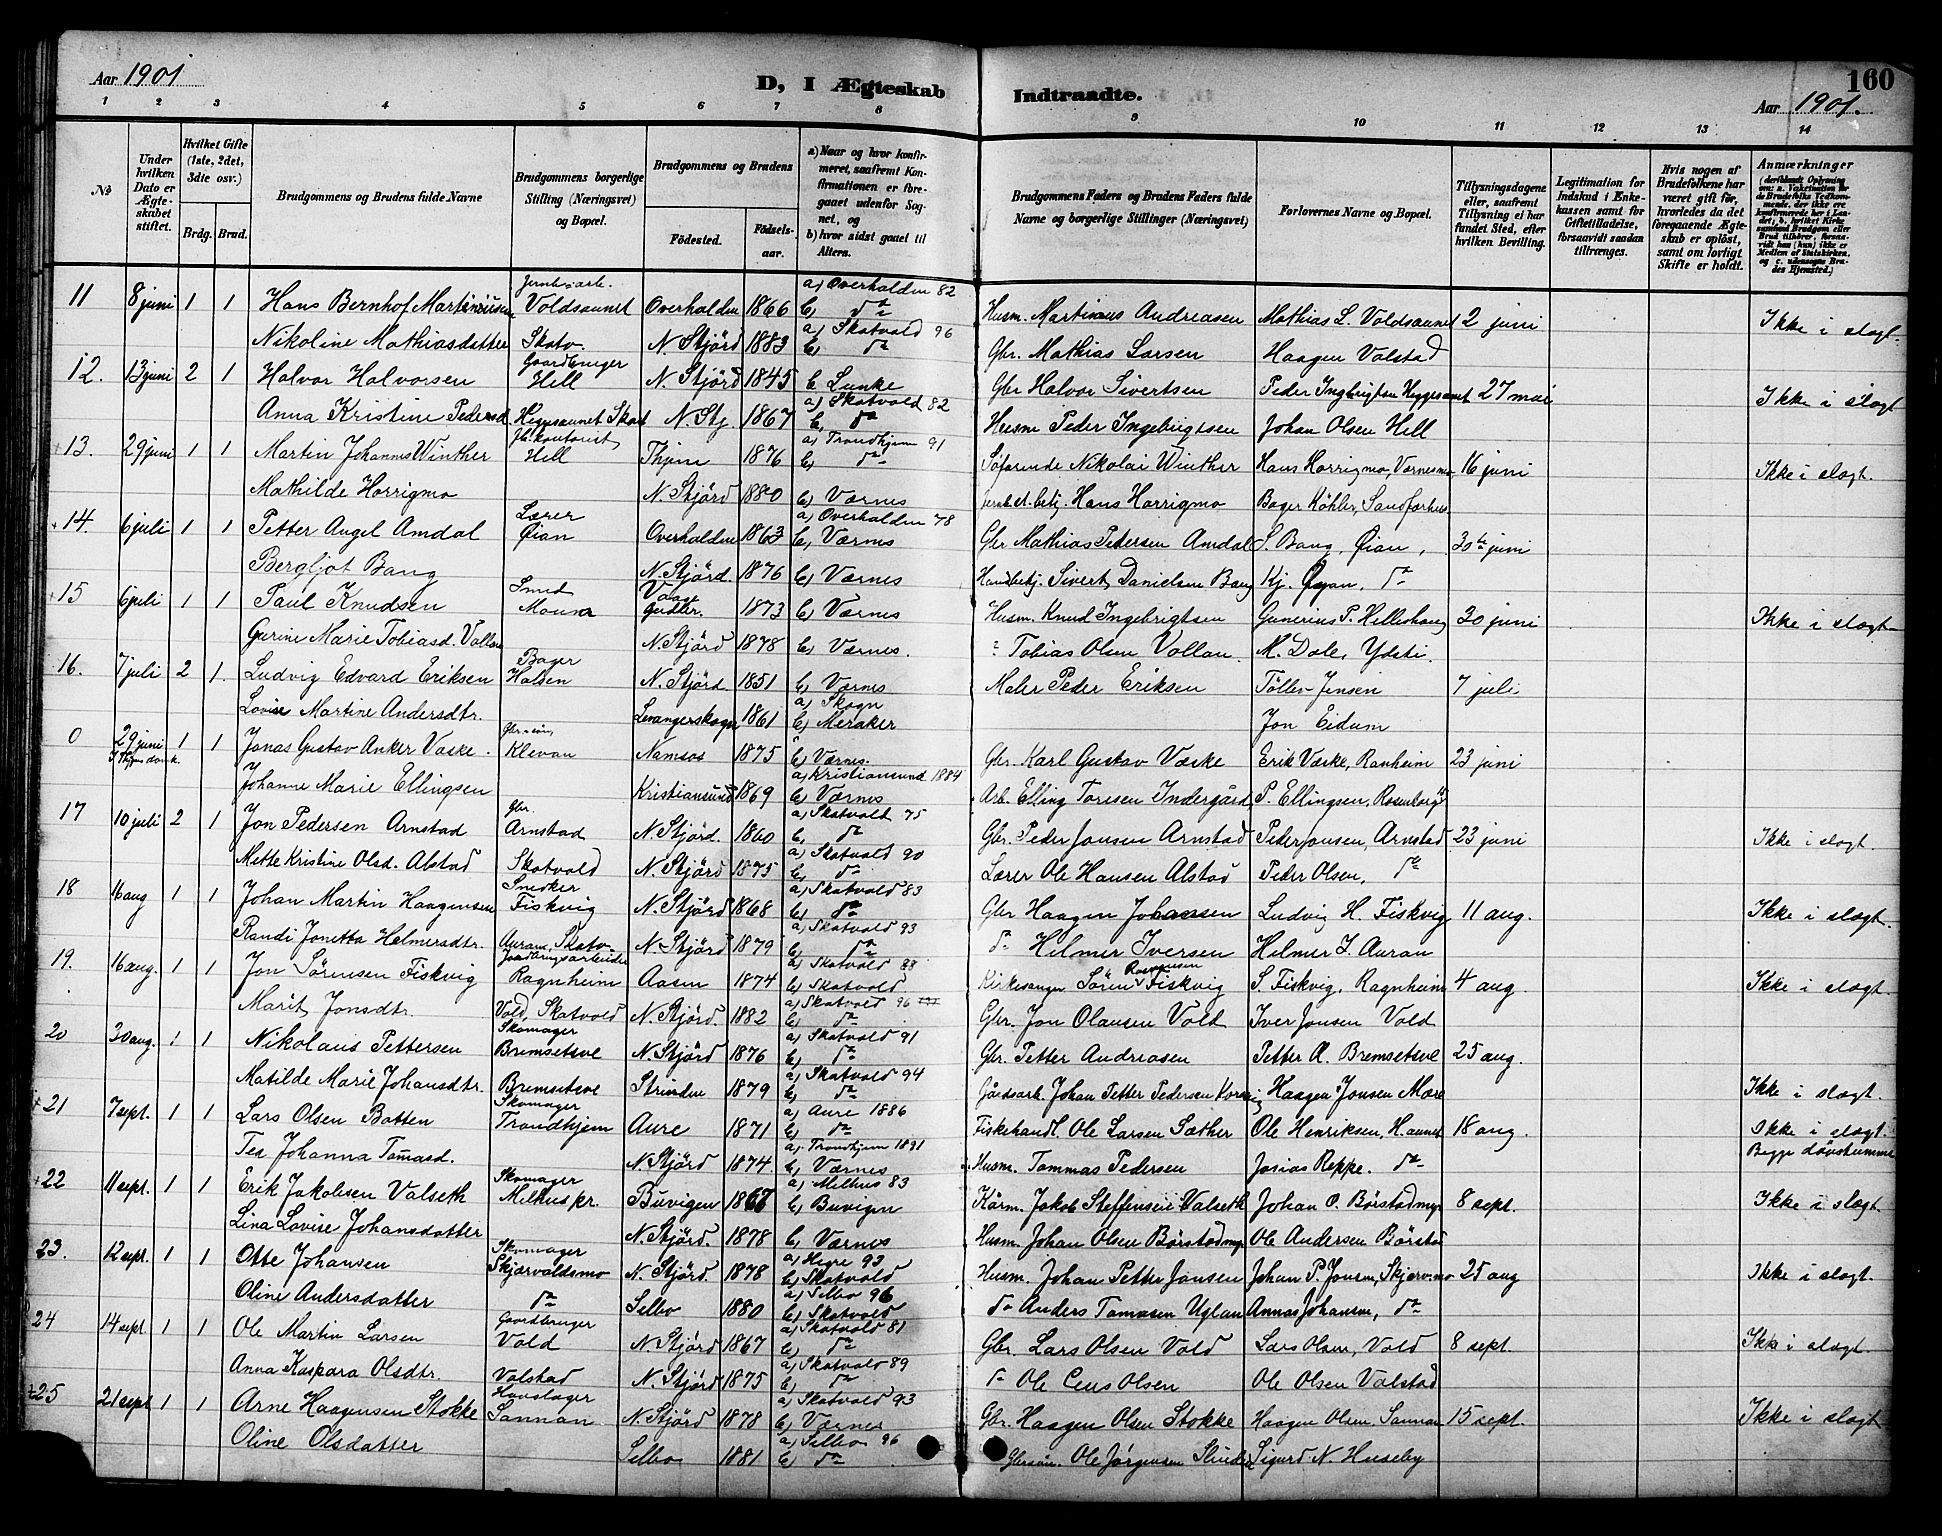 Aar 1901
D, I Ægteskab Indtraadte.
160
Aar 1901.
1 2 3 4 5 6 7 8 9 10 11 12 13 14
№
Under hvilken Dato er Ægteskabet stiftet.
Hvilket Gifte (1ste, 2det, 3die osv.)
Brdg. Brud.
Brudgommens og Brudens fulde Navne
Brudgommens borgerlige Stilling (Næringsvei) og Bopæl.
Brudgommens og Brudens
Fødested. Fødselsaar.
a) Naar og hvor konfirmeret, saafremt Konfirmationen er foregaaet udenfor Sognet, og b) hvor sidst gaaet til Alters.
Brudgommens Faders og Brudens Faders fulde Navne og borgerlige Stillinger (Næringsvei)
Forlovernes Navne og Bopæl.
Tillysningsdagene eller, saafremt Tillysning ei har fundet Sted, efter hvilken Bevilling.
Legitimation for Indskud i Enkekassen samt for Giftetilladelse, forsaavidt saadan tiltrænges.
Hvis nogen af Brudefolkene har været gift før, hvorledes da det foregaaende Ægteskab er opløst, samt om lovligt Skifte er holdt.
Anmærkninger
11 8 juni 1 1 Hans Bernhof Martinusen Jernb.arb. Voldsaunet Overhalden 1866 a) Overhalden 82 b) do Husm. Martinus Andreasen Mathias L. Voldsaunet 2 juni Ikke i slægt.
Nikoline Mathiasdatter Skatv. N. Stjørd 1883 a) Skatvold 96 b) do Gbr. Mathias Larsen Haagen Valstad
12. 13 juni 2 1 Halvor Halvorsen Gaardbruger Hell N. Stjørd 1845 b) Lunke Gbr Halvor Sivertsen Peder Ingbrigtsen Heggesaunet 27 mai Ikke i slægt
Anna Kristine Pedersd. Heggesaunet Skat N. Stj. 1867 a) Skatvold 82 b) do Husm Peder Ingebrigtsen Johan Olsen Hell
13. 29 juni 1 1 Martin Johannes Winther Jb.kontorist Hell Thjem 1876 a) Trondhjem 91 b) do Søfarende Nikolai Winther Hans Horrigmo, Værnesmo, 16 juni Ikke i slægt.
Mathilde Horrigmo N. Stjørd 1880 b) Værnes Jernb.st.betj. Hans Horrigmo Bager Köhler, Sandfærhus
14. 6 juli 1 1 Petter Angel Amdal Lærer Øian Overhalden 1863 a) Overhalden 78 b) Værnes Gbr Mathias Pedersen Amdal S. Bang, Øian, 30te juni
Bergljot Bang N. Stjørd. 1876 b) Værnes Handbetj. Sivert Danielsen Bang Kj. Øyan. do
15 6 juli 1 1 Paul Knudsen Smed Mouse Vaage 1873 b) Værnes Husm. Knud Ingebrigtsen Gunerius P. Helleshaug 30 juni Ikke i slægt
Gurine Marie Tobiasd. Vollan N. Stjørd 1878 b) Værnes. " Tobias Olsen Vollan. M. Dale, Ydsti.
16. 7 juli 2 1. Ludvig Edvard Eriksen Bager Halsen N. Stjørd 1851 b) Værnes Maler Peder Eriksen Töllev Jensen 7 juli
Lovise Martine Andersdtr. Levangerskogn 1861 a) Skogn b) Meraker Jon Eidum
0 29 juni 1 1 Jonas Gustav Anker Vaske. Klevan Namsos 1875 b) Værnes. Gbr. Karl Gustav Væske Erik Væske, Ranheim 23 juni
Johanne Marie Ellingsen Kristiansund 1869 a) Kristiansund 1884 b) Værnes Arb. Elling Toresen Indergård P. Ellingsen, Rosenborg
17 10 juli 2 1 Jon Pedersen Arnstad Gbr. Arnstad N. Stjørd. 1860 a) Skatvolt 75 b) do Gbr. Peder Jonsen Arnstad Peder Jonsen, Arnstad 23 juni Ikke i slægt.
Mette Kristine Olsd. Alstad Skatvold N. Stjørd 1875 a) Skatvold 90 b) do Lærer Ole Hansen Alstad Peder Olsen, do
18 16 aug 1 1 Johan Martin Haagensen Snedker Fiskvig N. Stjørd 1868 a) Skatvold 83 b) do Gbr Haagen Johansen Ludvig H. Fiskvig 11 aug. Ikke i slægt.
Randi Jonetta Helmersdtr. Auran, Skatv. N. Stjørd 1879 a) Skatvold 93 b) do do Helmer Iversen Helmer I. Auran
19. 16 aug. 1 1 Jon Sørensen Fiskvig Jordbrugsarbeider Ragnheim Aasen 1874 a) Skatvold 88 b) Skatvold Kirkesanger Sören Rasmussen Fiskvig S. Fiskvig, Ragnheim 4 aug. Ikke i slægt.
Marit Jonsdtr. Vold, Skatvold N. Stjørd. 1882 a) Skatvold 96 b) do Gbr. Jon Olausen Vold Iver Jonsen Vold
20 30 aug. 1 1 Nikolaus Pettersen Skomager Bremsetsve N. Stjørd 1876 a) Skatvold 91 b) do Gbr. Petter Andreasen Petter A. Bremsetsve 25 aug.
Matilde Marie Johansdtr. Bremsetsve Strinden 1879 a) Skatvold 94 b) do Gådsarb. Johan Petter Pedersen Haagen Jonsen Mære Ikke i slægt.
21 7 sept. 1 1 Lars Olsen Botten Skomager Trondhjem Aure 1871 a) Aure 1886 b) do Fiskehandl. Ole Larsen Sæther Ole Henriksen, H.aunet 18 aug. Ikke i slægt.
Tea Johanna Tomasd. N. Stjørd 1874. a) Trondhjem 1891 b) Værnes Husm. Tommas Pedersen Josias Reppe. do Begge døvstumme
22 11 sept. 1 1 Erik Jakobsen Valseth Skomager Melhus pr. Buvigen 1867 a) Melhus 83 b) Buvigen Kårm. Jakob Steffensen Valseth Johan O. Børstadmyr 8 sept. Ikke i slægt.
Lina Lovise Johansdatter N. Stjørd. 1878 b) Værnes Husm. Johan Olsen Børstadmyr Ole Andersen Børstad
23. 12 sept. 1 1 Otte Johansen Skomager Skjærvoldsmo N. Stjørd. 1878 a) Hegre 93 b) Skatvold Husm. Johan Petter Jonsen Johan P. Jonsen, Skjervmo 25 aug Ikke i slægt.
Oline Andersdatter do Selbo 1880 a) Selbo 96 b) Skatvold do Anders Tomasen Uglan Annas Johansen, do
24 14 sept. 1 1 Ole Martin Larsen Gaardbruger Vold N. Stjørd 1867 a) Skatvold 81 b) do Gbr. Lars Olsen Vold Lars Olsen, Vold 8 sept. Ikke i slægt.
Anna Kaspara Olsdtr. Valstad N. Stjørd 1875 a) Skatvold 89 b) do do Ole Olsen Ole Olsen Valstad
25 21 sept 1 1 Arne Haagensen Stokke Hovslager Sannan N. Stjørd 1878 a) Skatvold 93 b) Værnes Gbr. Haagen Olsen Stokke Haagen Olsen Sannan 15 sept. Ikke i slægt
Oline Olsdatter Selbo 1881 a) Selbo 96 b) do Gbrsøn. Ole Jørgensen Sigurd N. Huseby